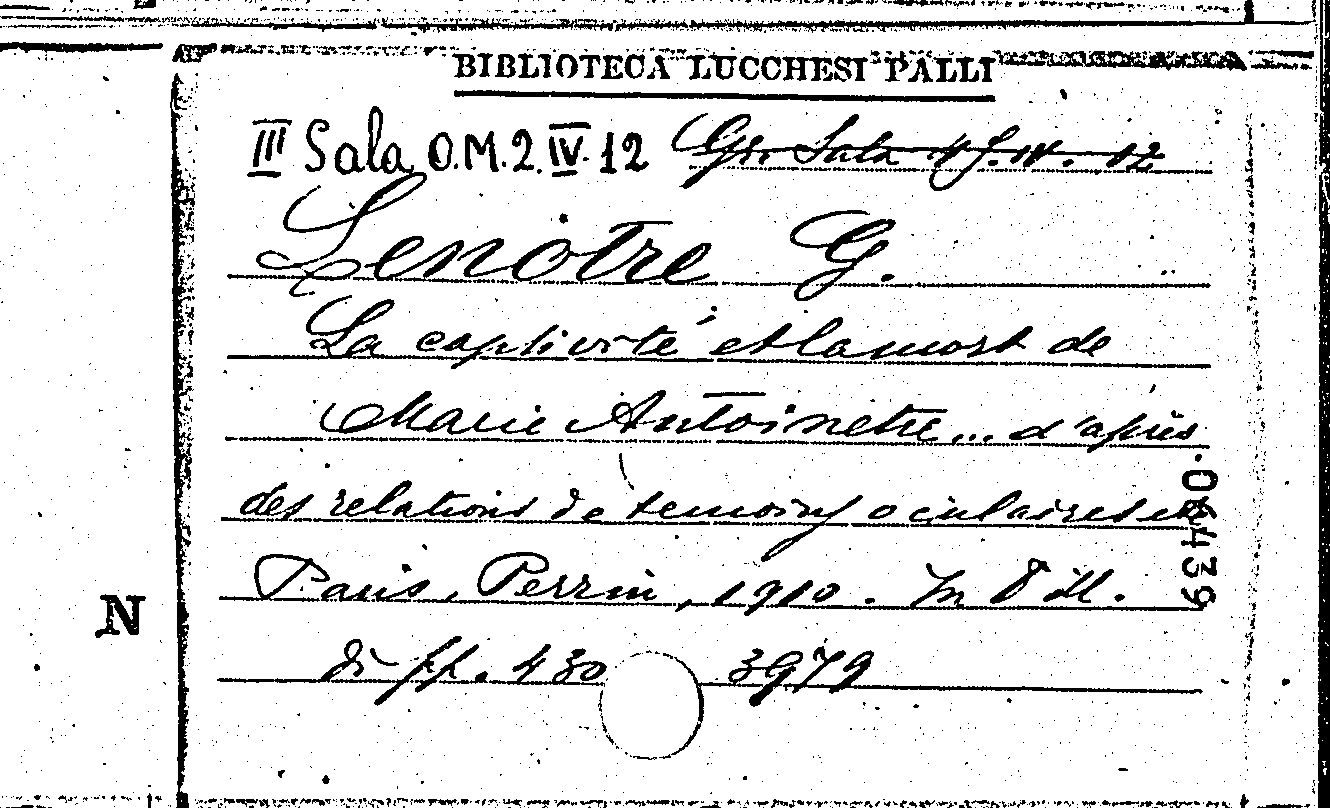 BIBLIOTECA LUCCHESI PALLI
III Sala O.M.2.IV.12 Gr. Sala
Lenôtre G.
La captivité et la mort de
Marie Antoinette... d'après
des relations de temoins oculaires etc
Paris, Perrin, 1910. In 8 ill.
di pp. 430 3979
N
04439